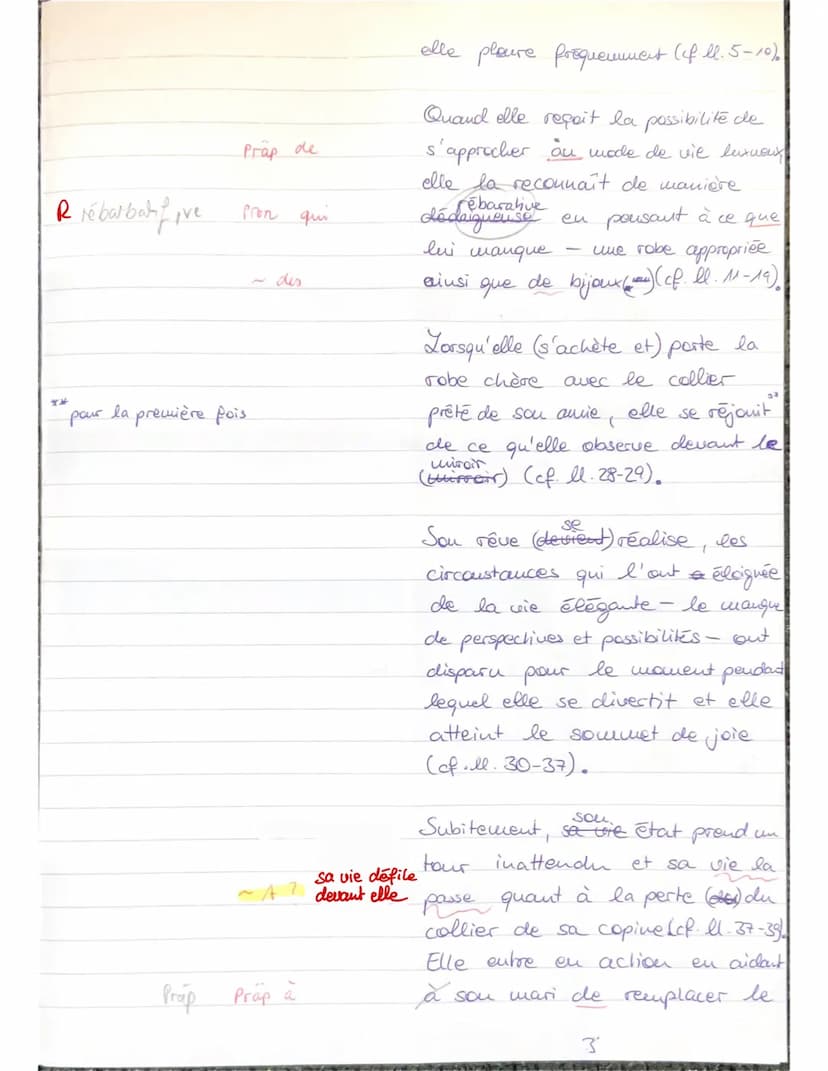 elle pleure fréquemment (cf ll. 5-10).
Quand elle reçoit la possibilité de
Präp de s'approcher au mode de vie luxueux
elle la reconnaît de manière
rébarative
R rébarbatif, ive Pron qui dédaigneuse en pensant à ce que
lui manque – une robe appropriée
~ des ainsi que de bijoux (cf. ll. 11-19).
Lorsqu'elle (s'achète et) porte la
robe chère avec le collier
** pour la première fois prêté de son amie, elle se réjouit **
de ce qu'elle observe devant le
miroir
(mirroir) (cf. ll. 28-29).
se
Son rêve (devient) réalise, les
circonstances qui l'ont éloignée
de la vie élégante – le manque
de perspectives et possibilités – ont
disparu pour le moment pendant
lequel elle se divertit et elle
atteint le sommet de joie
(cf. ll. 30-37).
son
Subitement, sa vie état prend un
tour inattendu et sa vie la
~ A ? sa vie défile devant elle passe quant à la perte du
collier de sa copine (cf. ll. 37-39).
Elle entre en action en aidant
Präp Präp à à son mari de remplacer le
3